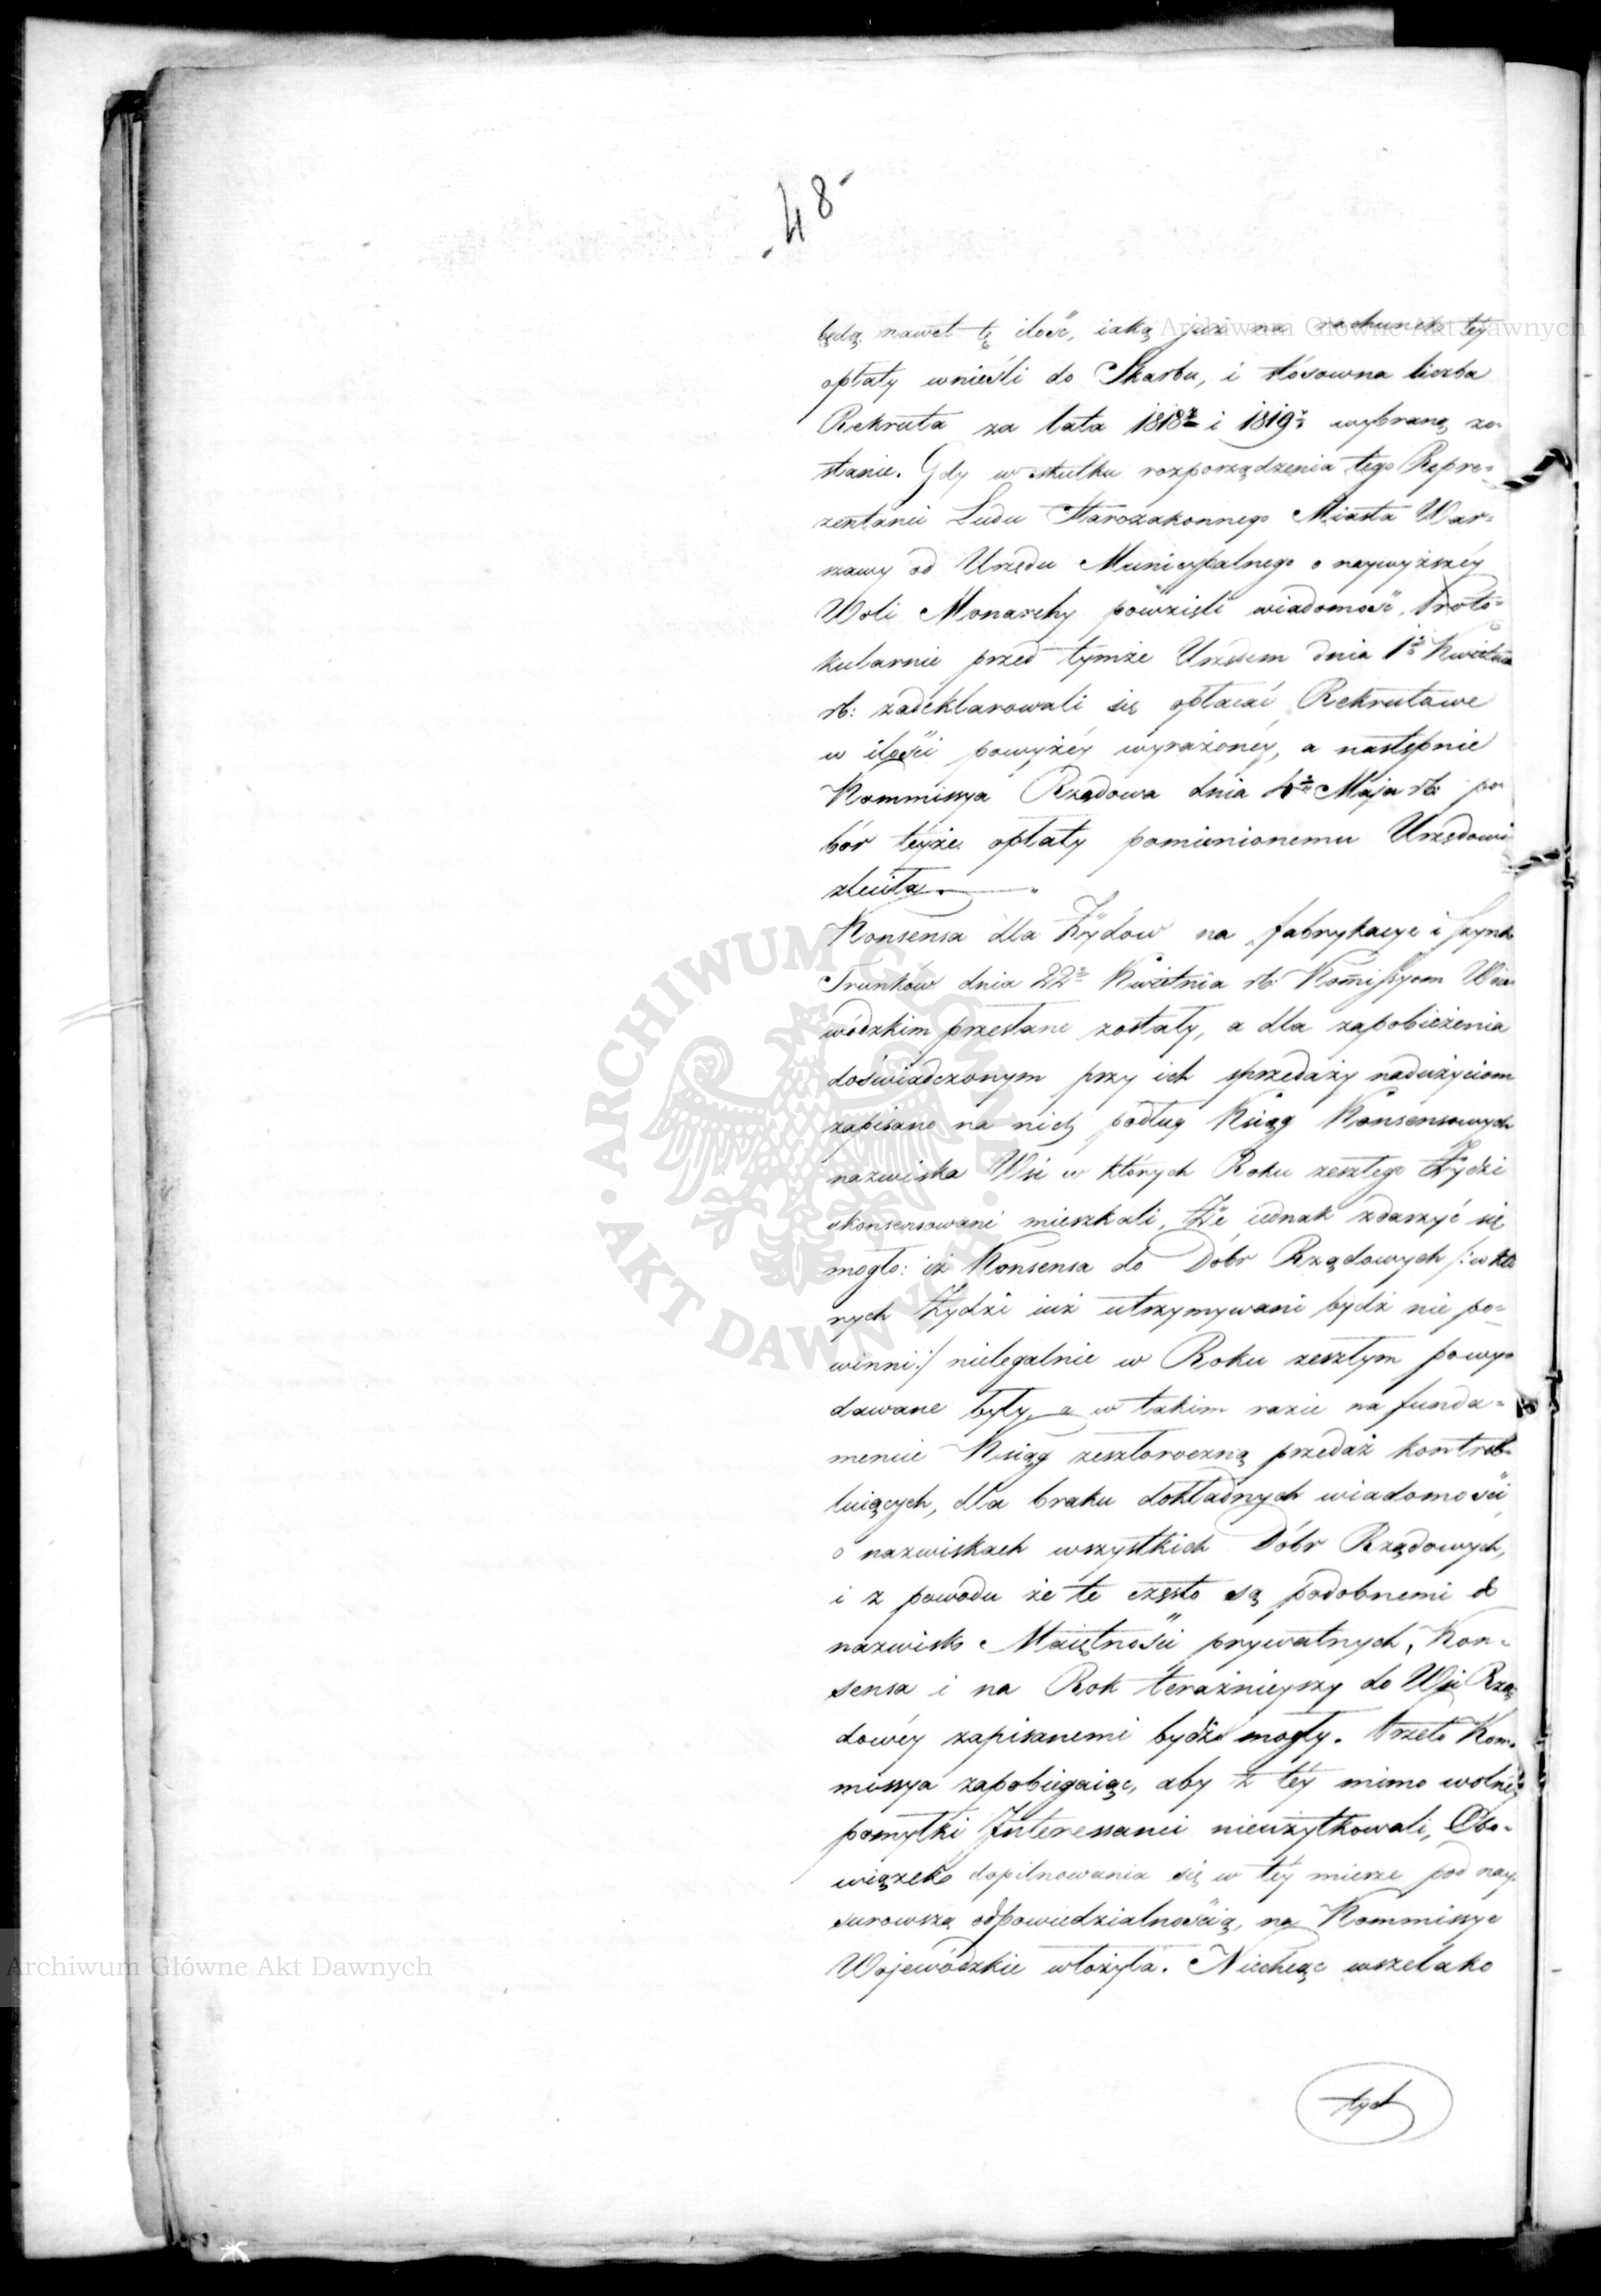 - 48 -
będą nawet tę ilość, iaką już na rachunek téy
opłaty wnieśli do Skarbu, i stósowna liczba
Rekruta za lata 1818 i 1819 wybraną zo-
stanie. Gdy w skutku rozporządzenia tego Repre-
zentanci Ludu Starozakonnego Miasta War-
szawy od Urzędu Municypalnego o naywyższéy
Woli Monarchy powzięli wiadomość, Proto-
kularnie przed tymże Urzędem dnia 1 Kwietnia
rb: zadeklarowali się opłacać Rekrutowe
w ilości powyżéy wyrażonéy, a następnie
Kommissya Rządowa dnia 4 Maja rb: po-
bór téyże opłaty pomienionemu Urzędowi
zleciła.
Konsensa dla Żydów na fabrykacye i szynk
Trunków dnia 22 Kwietnia rb: Kom̄issyom Woie-
wódzkim przesłane zostały, a dla zapobieżenia
doświadczonym przy ich sprzedaży nadużyciom
zapisano na nich podług Ksiąg Konsensowych
nazwiska Wsi w których Roku zeszłego Żydzi
ukonsensowani mieszkali, Że iednak zdarzyć się
mogło: iż Konsensa do Dóbr Rządowych /: w któ
rych Żydzi iuż utrzymywani bydź nie po-
winni :/ nielegalnie w Roku zeszłym powy-
dawane były, a w takim razie na funda-
mencie Ksiąg zeszłoroczną przedaż kontrol-
luiących, dla braku dokładnych wiadomości
o nazwiskach wszystkich Dóbr Rządowych,
i z powodu że te często są podobnemi do
nazwisk Maiętności prywatnych, Kon-
sensa i na Rok teraźnieyszy do Wsi Rzą-
dowéy zapisanemi bydź mogły. Przeto Kom-
missya zapobiegaiąc, aby z téy mimo wolnéy
pomyłki Interessanci nieużytkowali, Obo-
wiązek dopilnowania się w téy mierze pod nay-
surowszą odpowiedzialnością, na Kommissye
Wojewódzkie włożyła. Niechcąc wszelako
tych
Archiwum Główne Akt Dawnych
Archiwum Główne Akt Dawnych
ARCHIWUM GŁÓWNE · AKT DAWNYCH ·